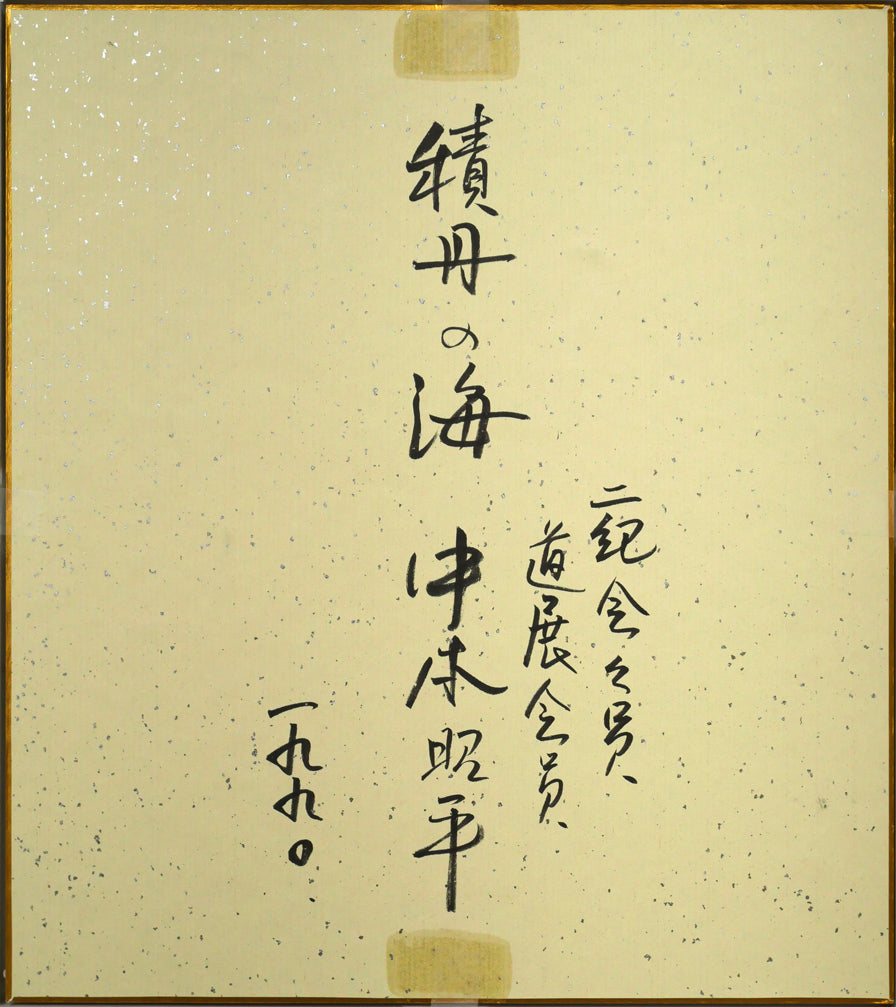 二紀会々員
道展会員
積丹の海 中本昭平
一九九〇